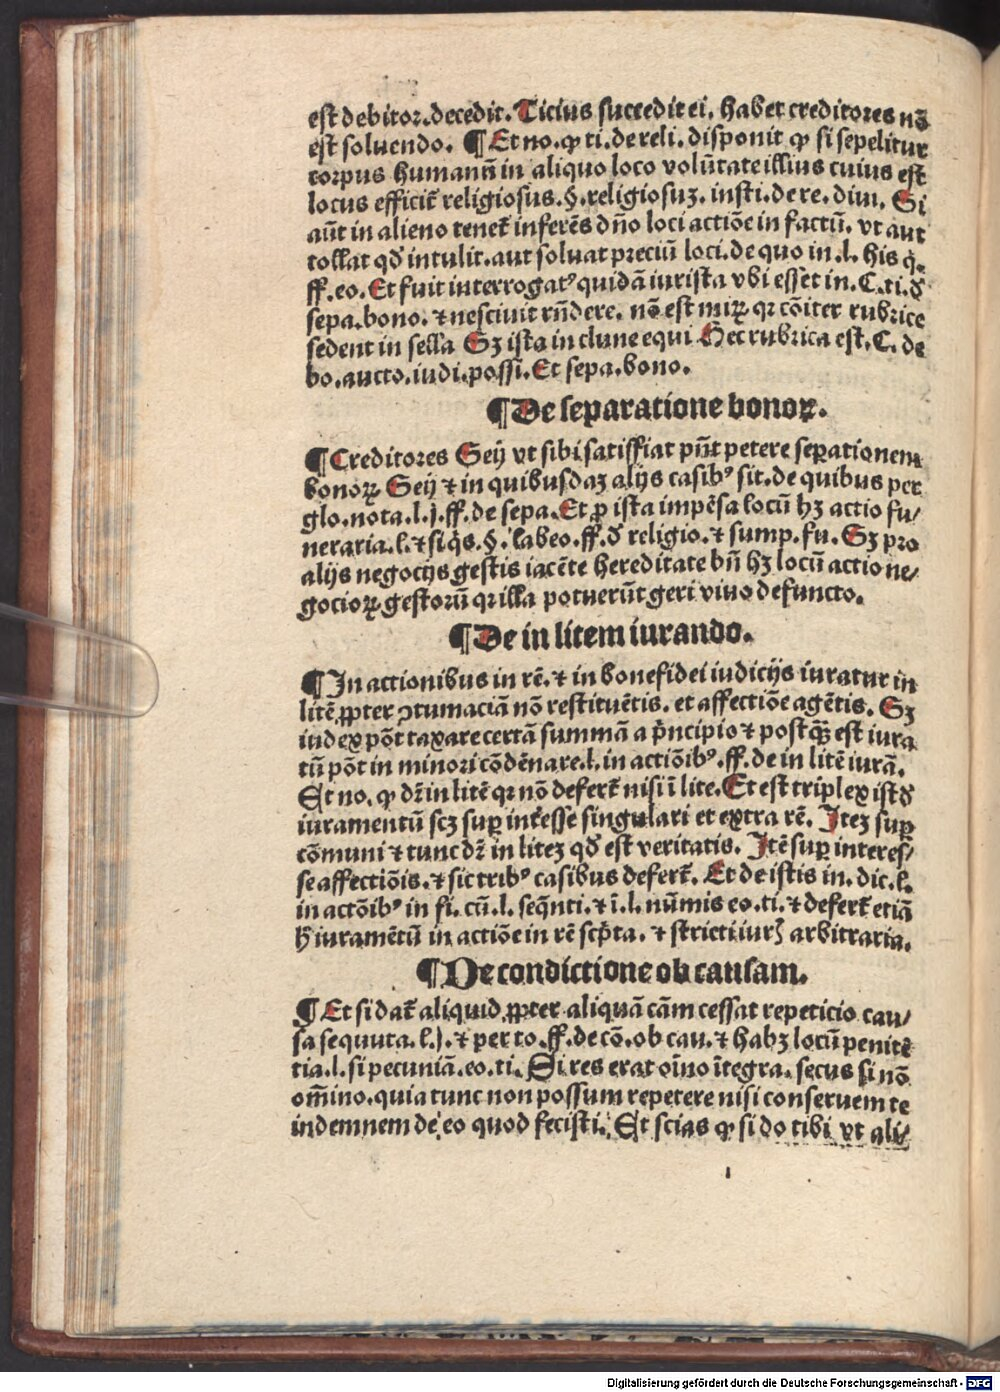 est debitor.decedit. Ticius succedit ei. habet creditores nō
est soluendo. ¶ Et no. ꝙ ti. de reli. disponit ꝙ si sepelitur
corpus humanū in aliquo loco volūtate illius cuius est
locus efficit̄ religiosus. §. religiosuꝫ. insti. de re. diui. Si
aūt in alieno tenet̄ inferēs dño loci actiōe in factū. vt aut
tollat qd̄ intulit. aut soluat preciū loci. de quo in .l. his q̇.
ff. eo. Et fuit interrogatꝰ quidā iurista vbi esset in. C. ti. ð
sepa. bono. ⁊ nesciuit rñdere. nō est miꝝ qꝛ cōiter rubrice
sedent in sella Sꝫ ista in clune equi Hec rubrica est. C. de
bo. aucto. iudi. possi. Et sepa. bono.
¶ De separatione bonoꝝ.
¶ Creditores Seij vt sibi satiffiat pñt petere seꝑationem
bonoꝝ Seij ⁊ in quibusdaꝫ alijs casibꝰ sit. de quibus per
glo. nota. l. j. ff. de sepa. Et ꝓ ista impēsa locū hꝫ actio fu/
neraria. l. ⁊ si q̇s. §. labeo. ff. ð religio. ⁊ sump. fu. Sꝫ pro
alijs negocijs gestis iacēte hereditate bñ hꝫ locū actio ne/
gocioꝝ gestorū qꝛ illa potuerūt geri viuo defuncto.
¶ De in litem iurando.
¶ In actionibus in rē. ⁊ in bonefidei iudicijs iuratur in
litē ꝓpter ꝯtumaciā nō restituētis. et affectiōe agētis. Sꝫ
iudex pōt taxare certā summā a pͥncipio ⁊ postq̄ꝫ est iura
tū pōt in minori cōdēnare. l. in actiōibꝰ. ff. de in litē iurā.
Et no. ꝙ dꝛ in litē qꝛ nō defert̄ nisi ī lite. Et est triplex istð
iuramentū scꝫ suꝑ int̄esse singulari et extra rē. Iteꝫ suꝑ
cōmuni ⁊ tunc dꝛ in liteꝫ qd̄ est veritatis. Itē suꝑ interes/
se affectiōis. ⁊ sic tribꝰ casibus defert̄. Et de istis in. dic. l.
in actōibꝰ in fi. cū. l. seq̄nti. ⁊ ī. l. nūmis eo. ti. ⁊ defert̄ etiā
h̄ iuramētū in actiōe in rē scp̄ta. ⁊ stricti iurꝭ arbitraria.
¶ De condictione ob causam.
¶ Et si dat̄ aliquid ꝓpter aliquā cām cessat repeticio cau/
sa sequuta. l. j. ⁊ per to. ff. de cō. ob cau. ⁊ habꝫ locū penitē
tia. l. si pecuniā. eo. ti. Si res erat oīno ītegra. secus si nō
om̄ino. quia tunc non possum repetere nisi conseruem te
indemnem de eo quod fecisti. Et scias ꝙ si do tibi vt ali/
Digitalisierung gefördert durch die Deutsche Forschungsgemeinschaft - DFG